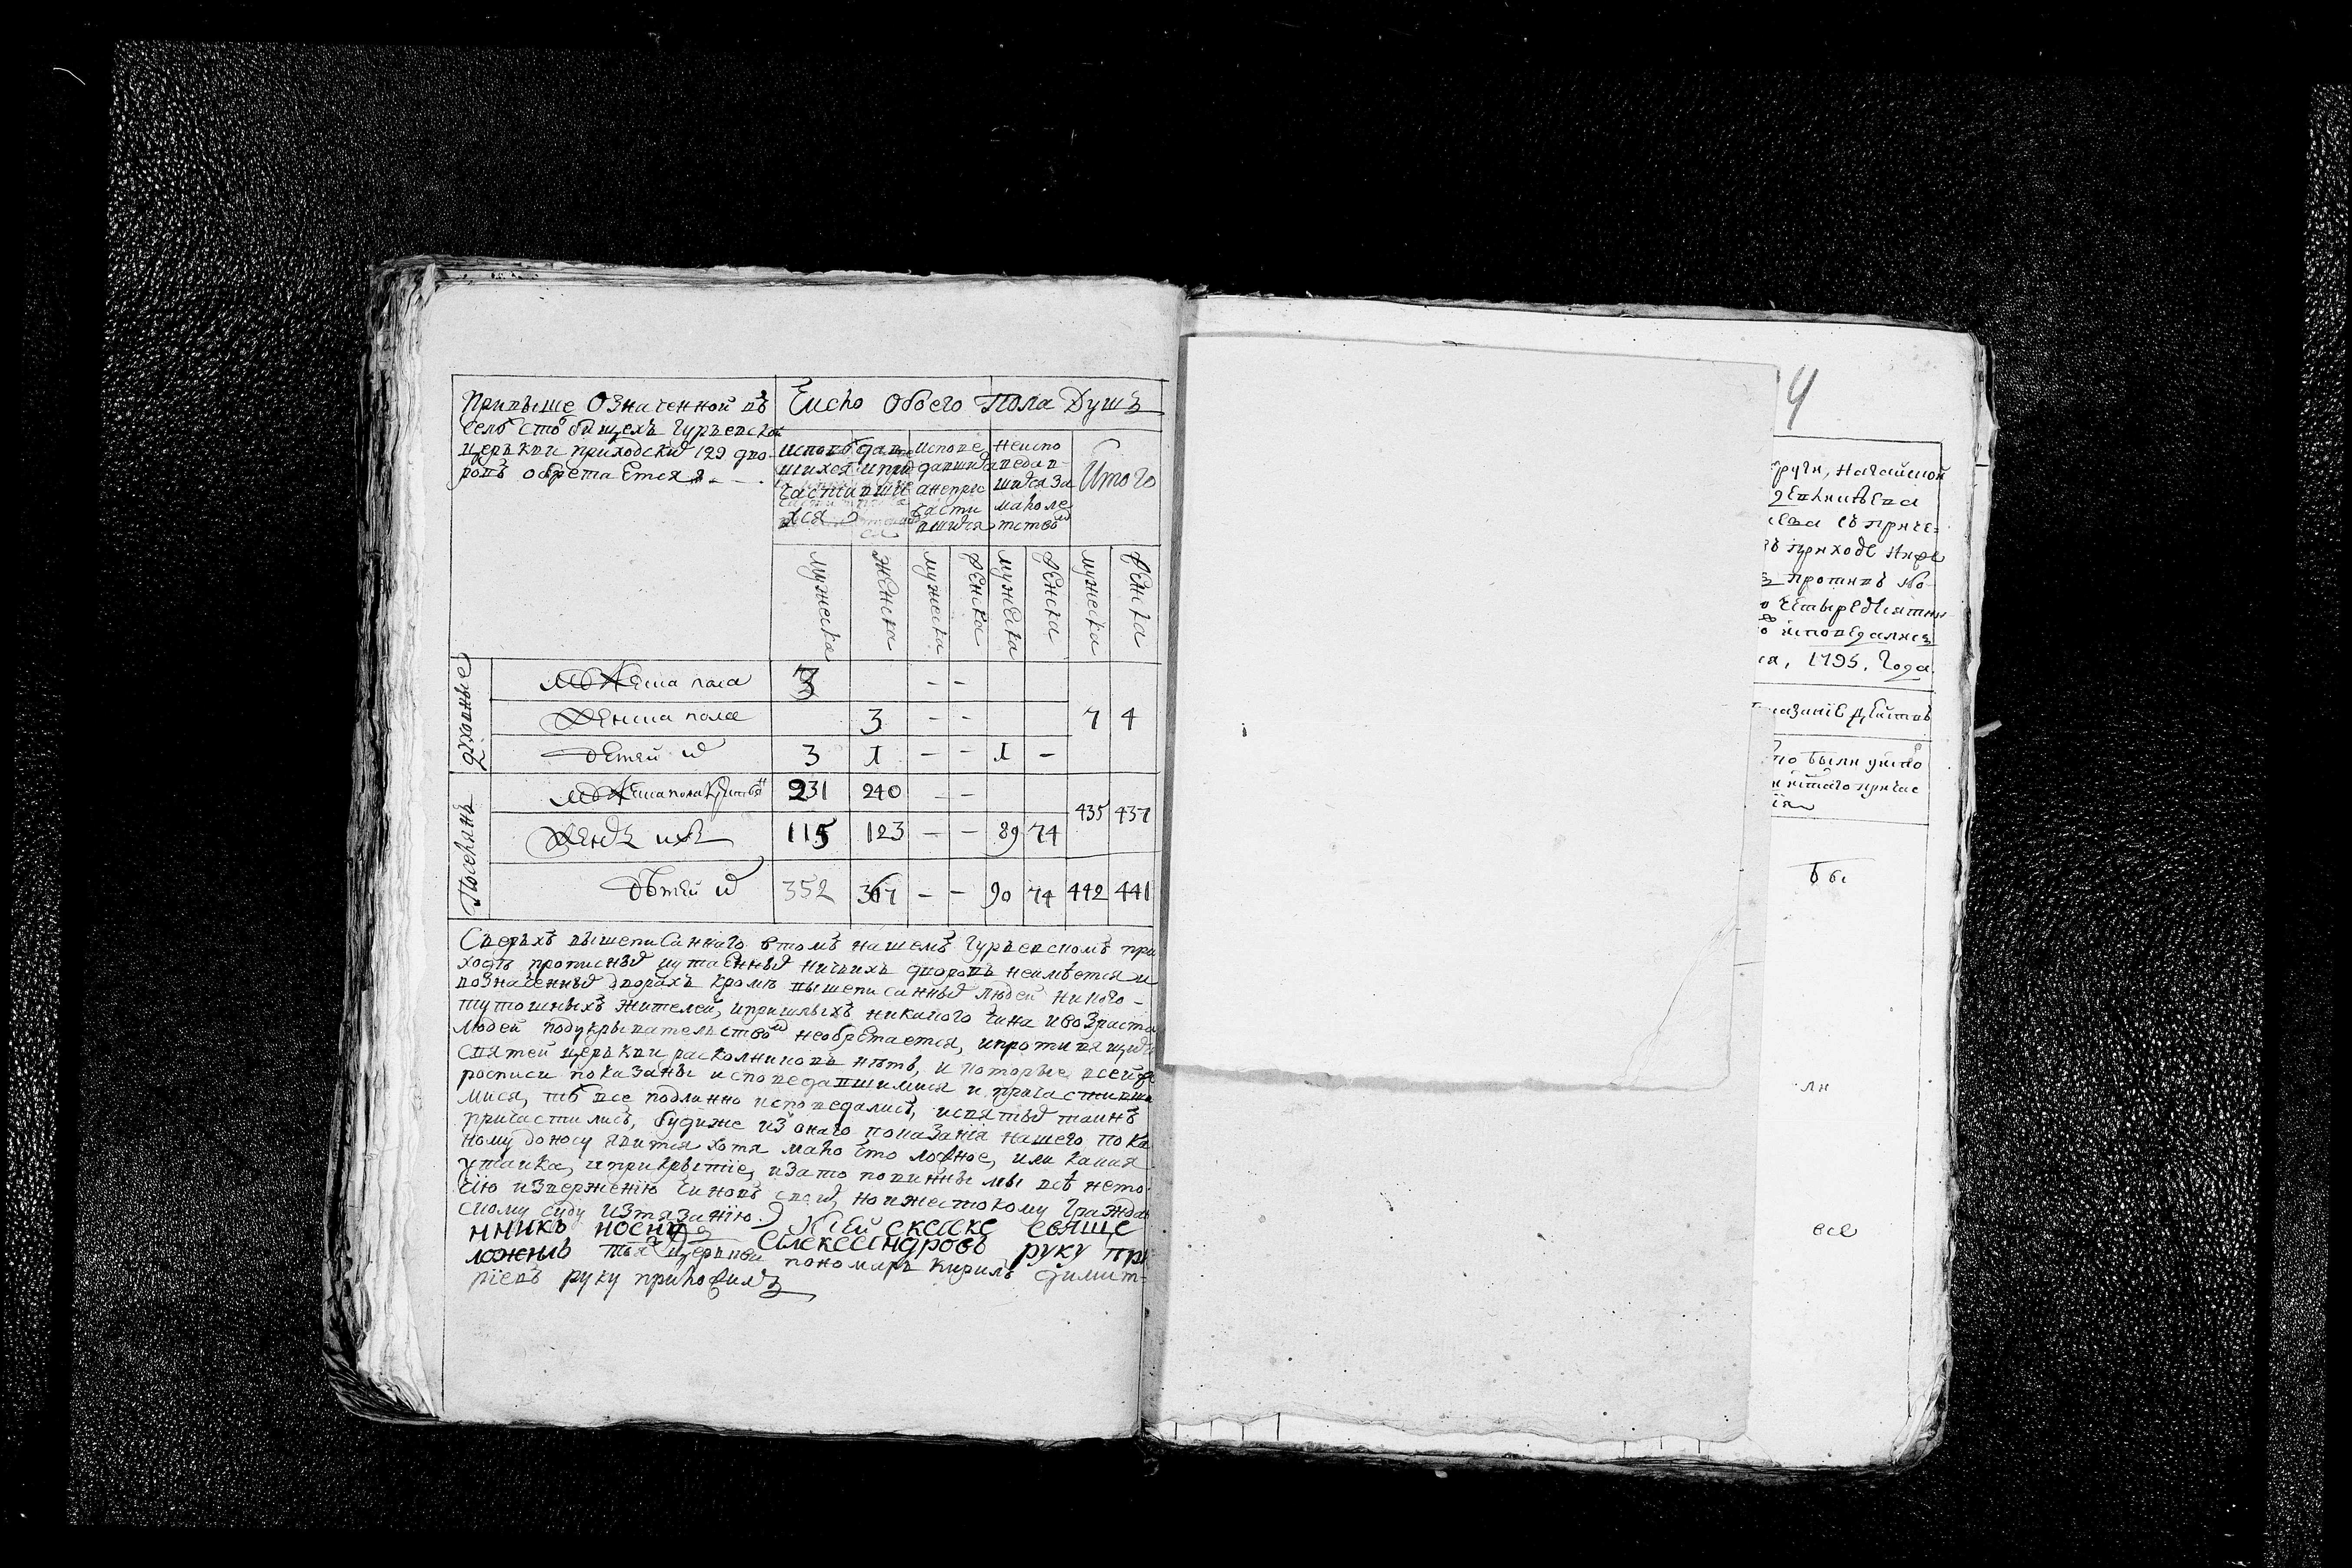 При выше означенной въ
селѣ стобищехъ гурьевской
церькви приходскихъ 129 дво-
ровъ обретается
Число обоего пола душъ
исповѣдав
шихся и при
частивши
хся
исповѣ
давшихся
а непри
части
вшихся
неиспо
ведав-
шихся за
мало ле
тствомъ
Итого
мужеска
женска
мужеска
женска
мужеска
женска
мужеска
женска
духовные
мужеска пола 3 - -
женска пола 3 - - 7 4
детей их 3 1 - - 1 -
Поселянъ
231 240 - -
435 437
115 123 - - 89 74
детей их 352 367 - - 90 74 442 441
Сверьхъ вышеписаннаго в томъ нашемъ гурьевскомъ при
ходѣ прописныхъ и утаенныхъ ничьихъ дворовъ неимѣется и
возначенныхъ дворахъ кромѣ вышеписанныхъ людей никого-
тутошныхъ жителей, и пришлыхъ никакого чина и возраста
людей под укрывательствомъ необретается, и противящихся
святей церькви расколниковъ нѣтъ, и которые всей
росписи показаны исповедавшимися и причастивши
мися, тѣ все подлинно исповедались, и святыхъ таинъ
причастились, будиже из онаго показанiя нашего по ка
кому доносу явится хотя мало что ложное, или какая
утайка, и прикрытiе, и за то повинны мы всѣ нето
чiю изверженiю чиновъ своихъ, но и жестокому гражда
скому суду истязанiю.
К сей скаске свяще
нникъ иосифъ Александровъ руку при
ложилъ тоя церькви пономарь кирилъ димит-
рiевъ руку приложилъ
4
руги, нагайской
протявъ
исповедались
1795. года
показанiе действъ
что были у испо
вс
ли
все